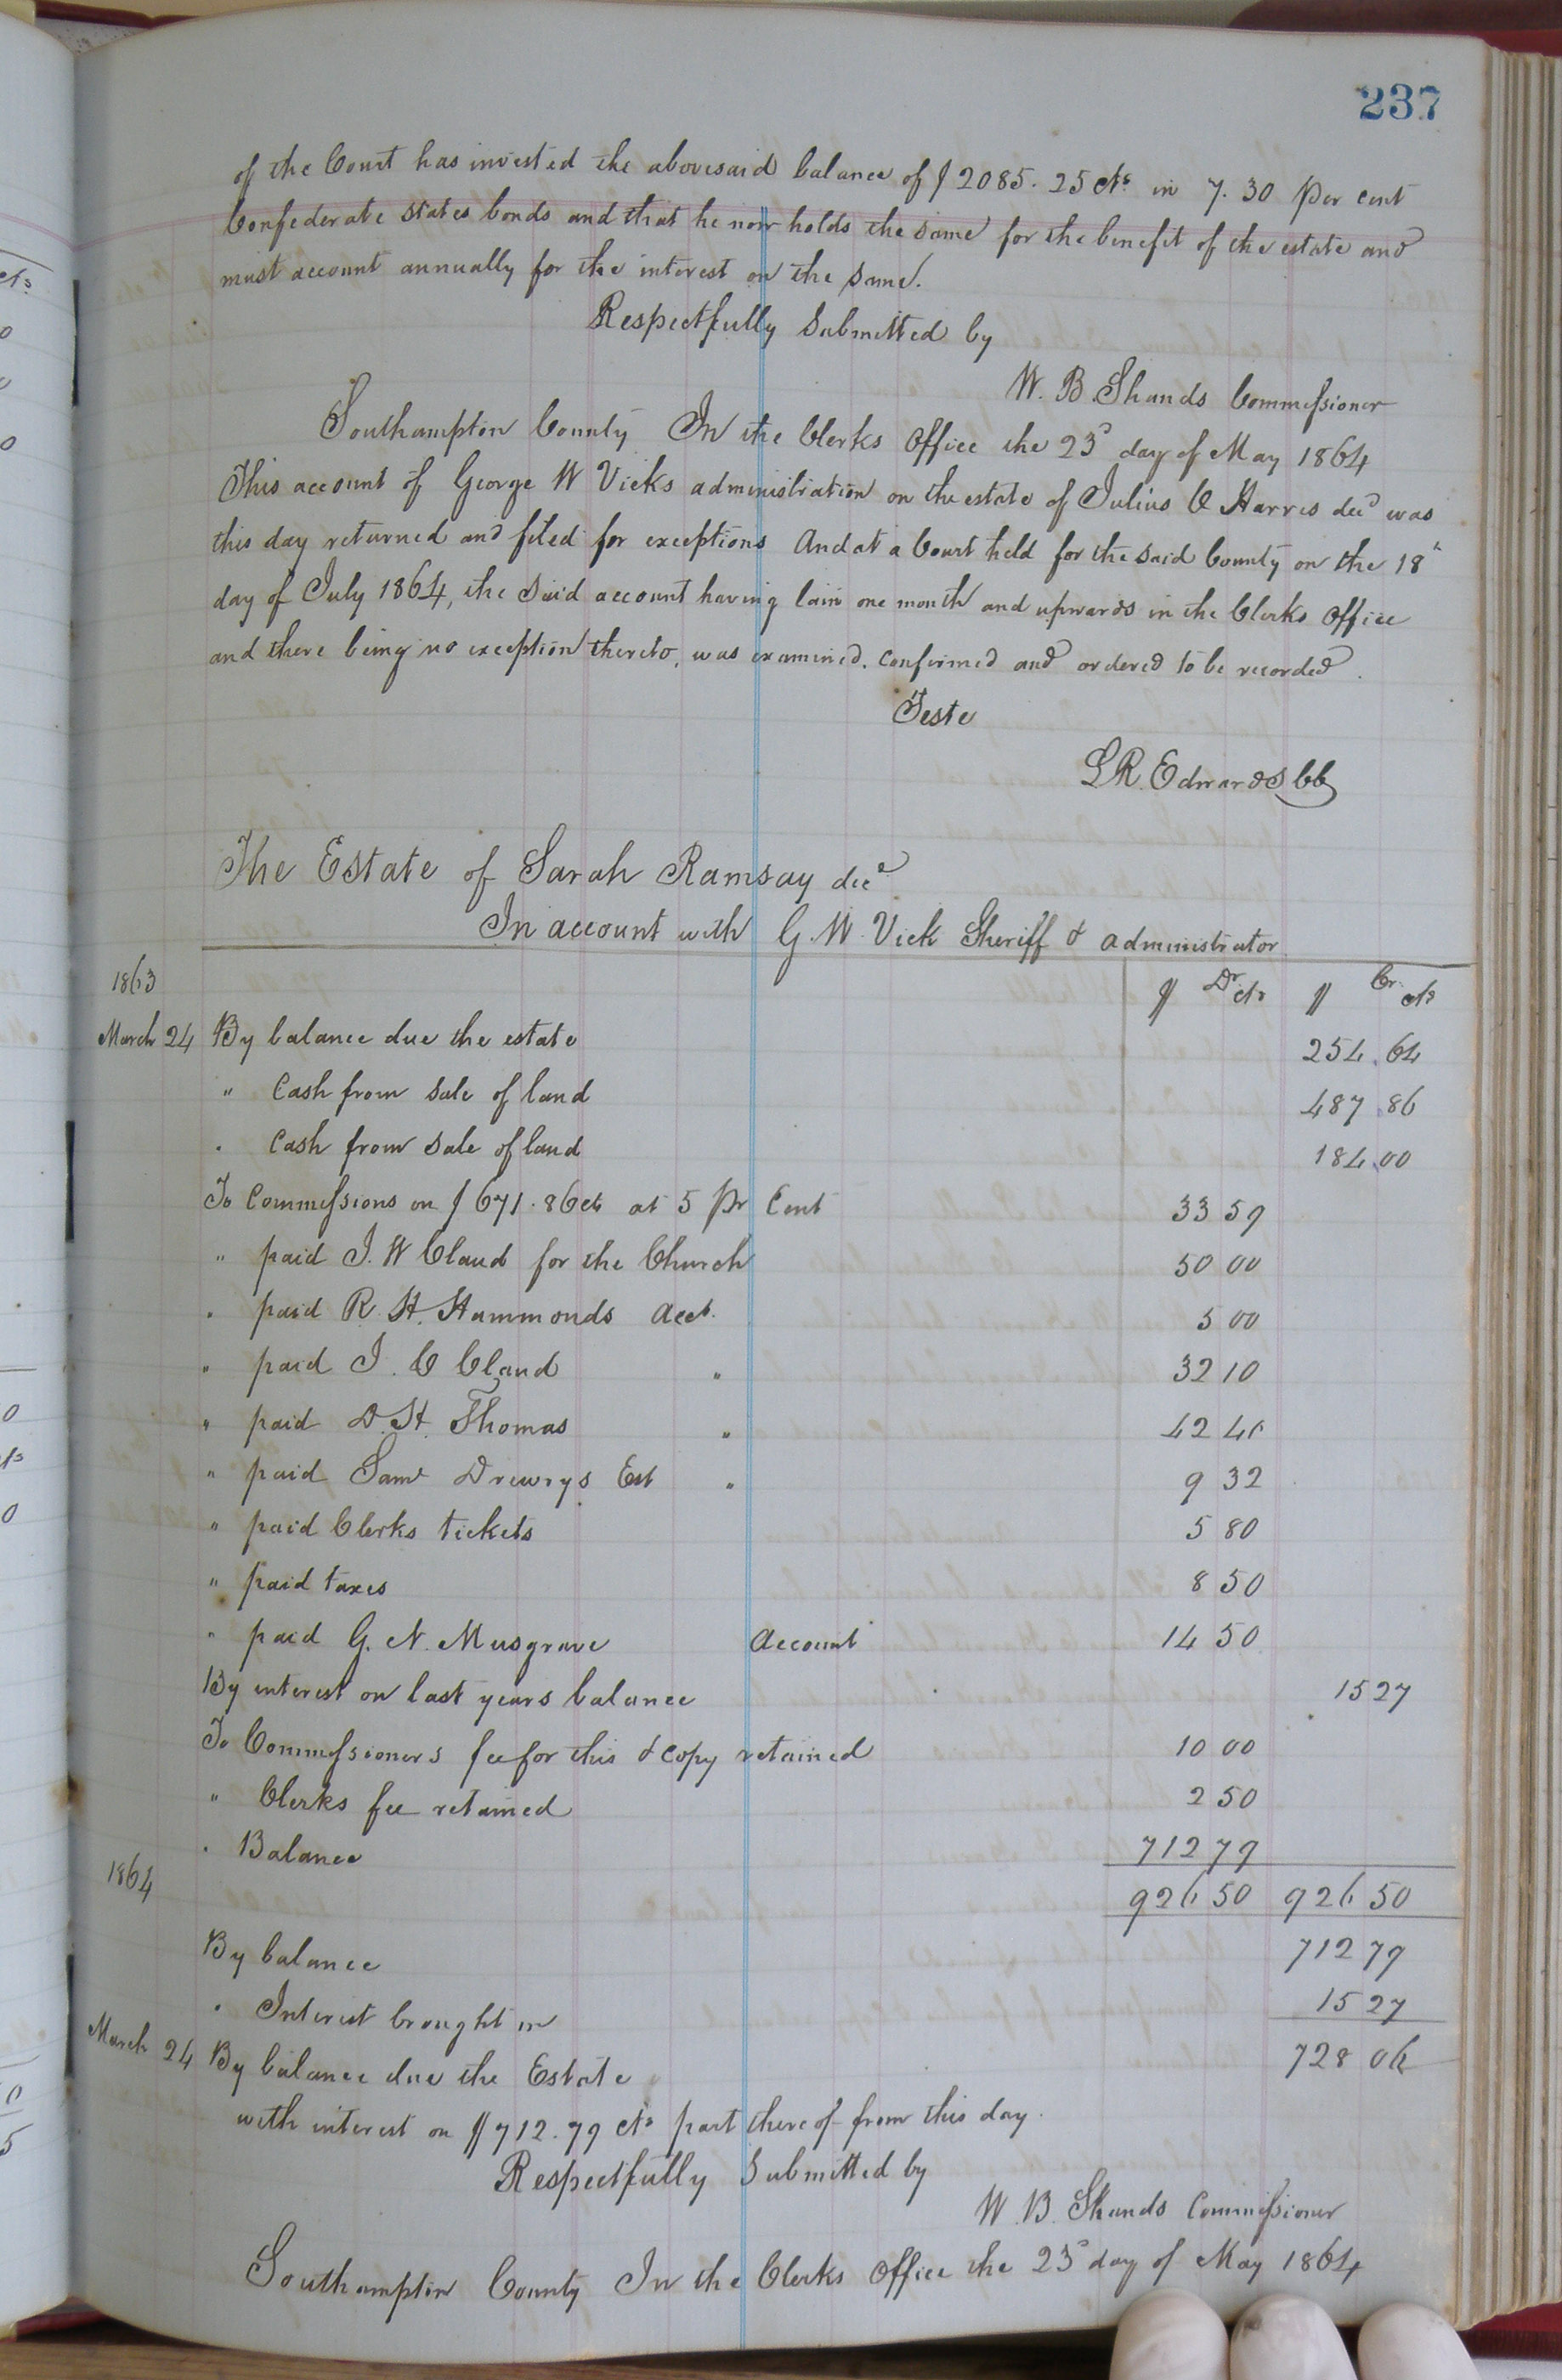 237
of the Court has invested the abovesaid balance of $2085. 25 cts in 7. 30 per cent
Confederate States bonds and that he now holds the same for the benefit of the estate and
must account annually for the interest on the same.
Respectfully Submitted by
W. B. Shands Commissioner
Southampton County In the Clerks Office the 23d day of May 1864
This account of George W Vicks administration on the estate of Julius C Harris decd was
this day returned and filed for exceptions And at a Court held for the said County on the 18th
day of July 1864, the said account having lain one month and upwards in the Clerks Office
and there being no exception thereto, was examined. confirmed and ordered to be recorded.
Teste
L R. Edwards CC
The Estate of Sarah Ramsay decd
In account with G. W. Vick Sheriff & administrator
1863 $ Dr cts $ Cr. cts
March 24 By balance due the estate 254. 64
" Cash from sale of land 487. 86
" Cash from sale of land 184.00
To Commissions on $671.86cts at 5 Pr Cent 33 59
" paid J. W Claud for the Church 50 00
" paid R. H. Hammonds Acct. 5 00
" paid J. C Claud " 32 10
" paid D. H. Thomas " 42 40
" paid Saml Drewrys Est " 9 32
" paid Clerks tickets 5 80
" paid taxes 8 50
" paid G. N. Musgrave Account 14 50
By interest on last years balance 15 27
To Commissioners fee for this & copy retained 10 00
" Clerks fee retained 2 50
" Balance 712 79
1864 926 50 926 50
By balance 712 79
" Interest brought in 15 27
March 24 By balance due the Estate 728 06
with interest on $712.79 cts part thereof from this day.
Respectfully Submitted by
W. B. Shands Commissioner
Southampton County In the Clerks Office the 23d day of May 1864